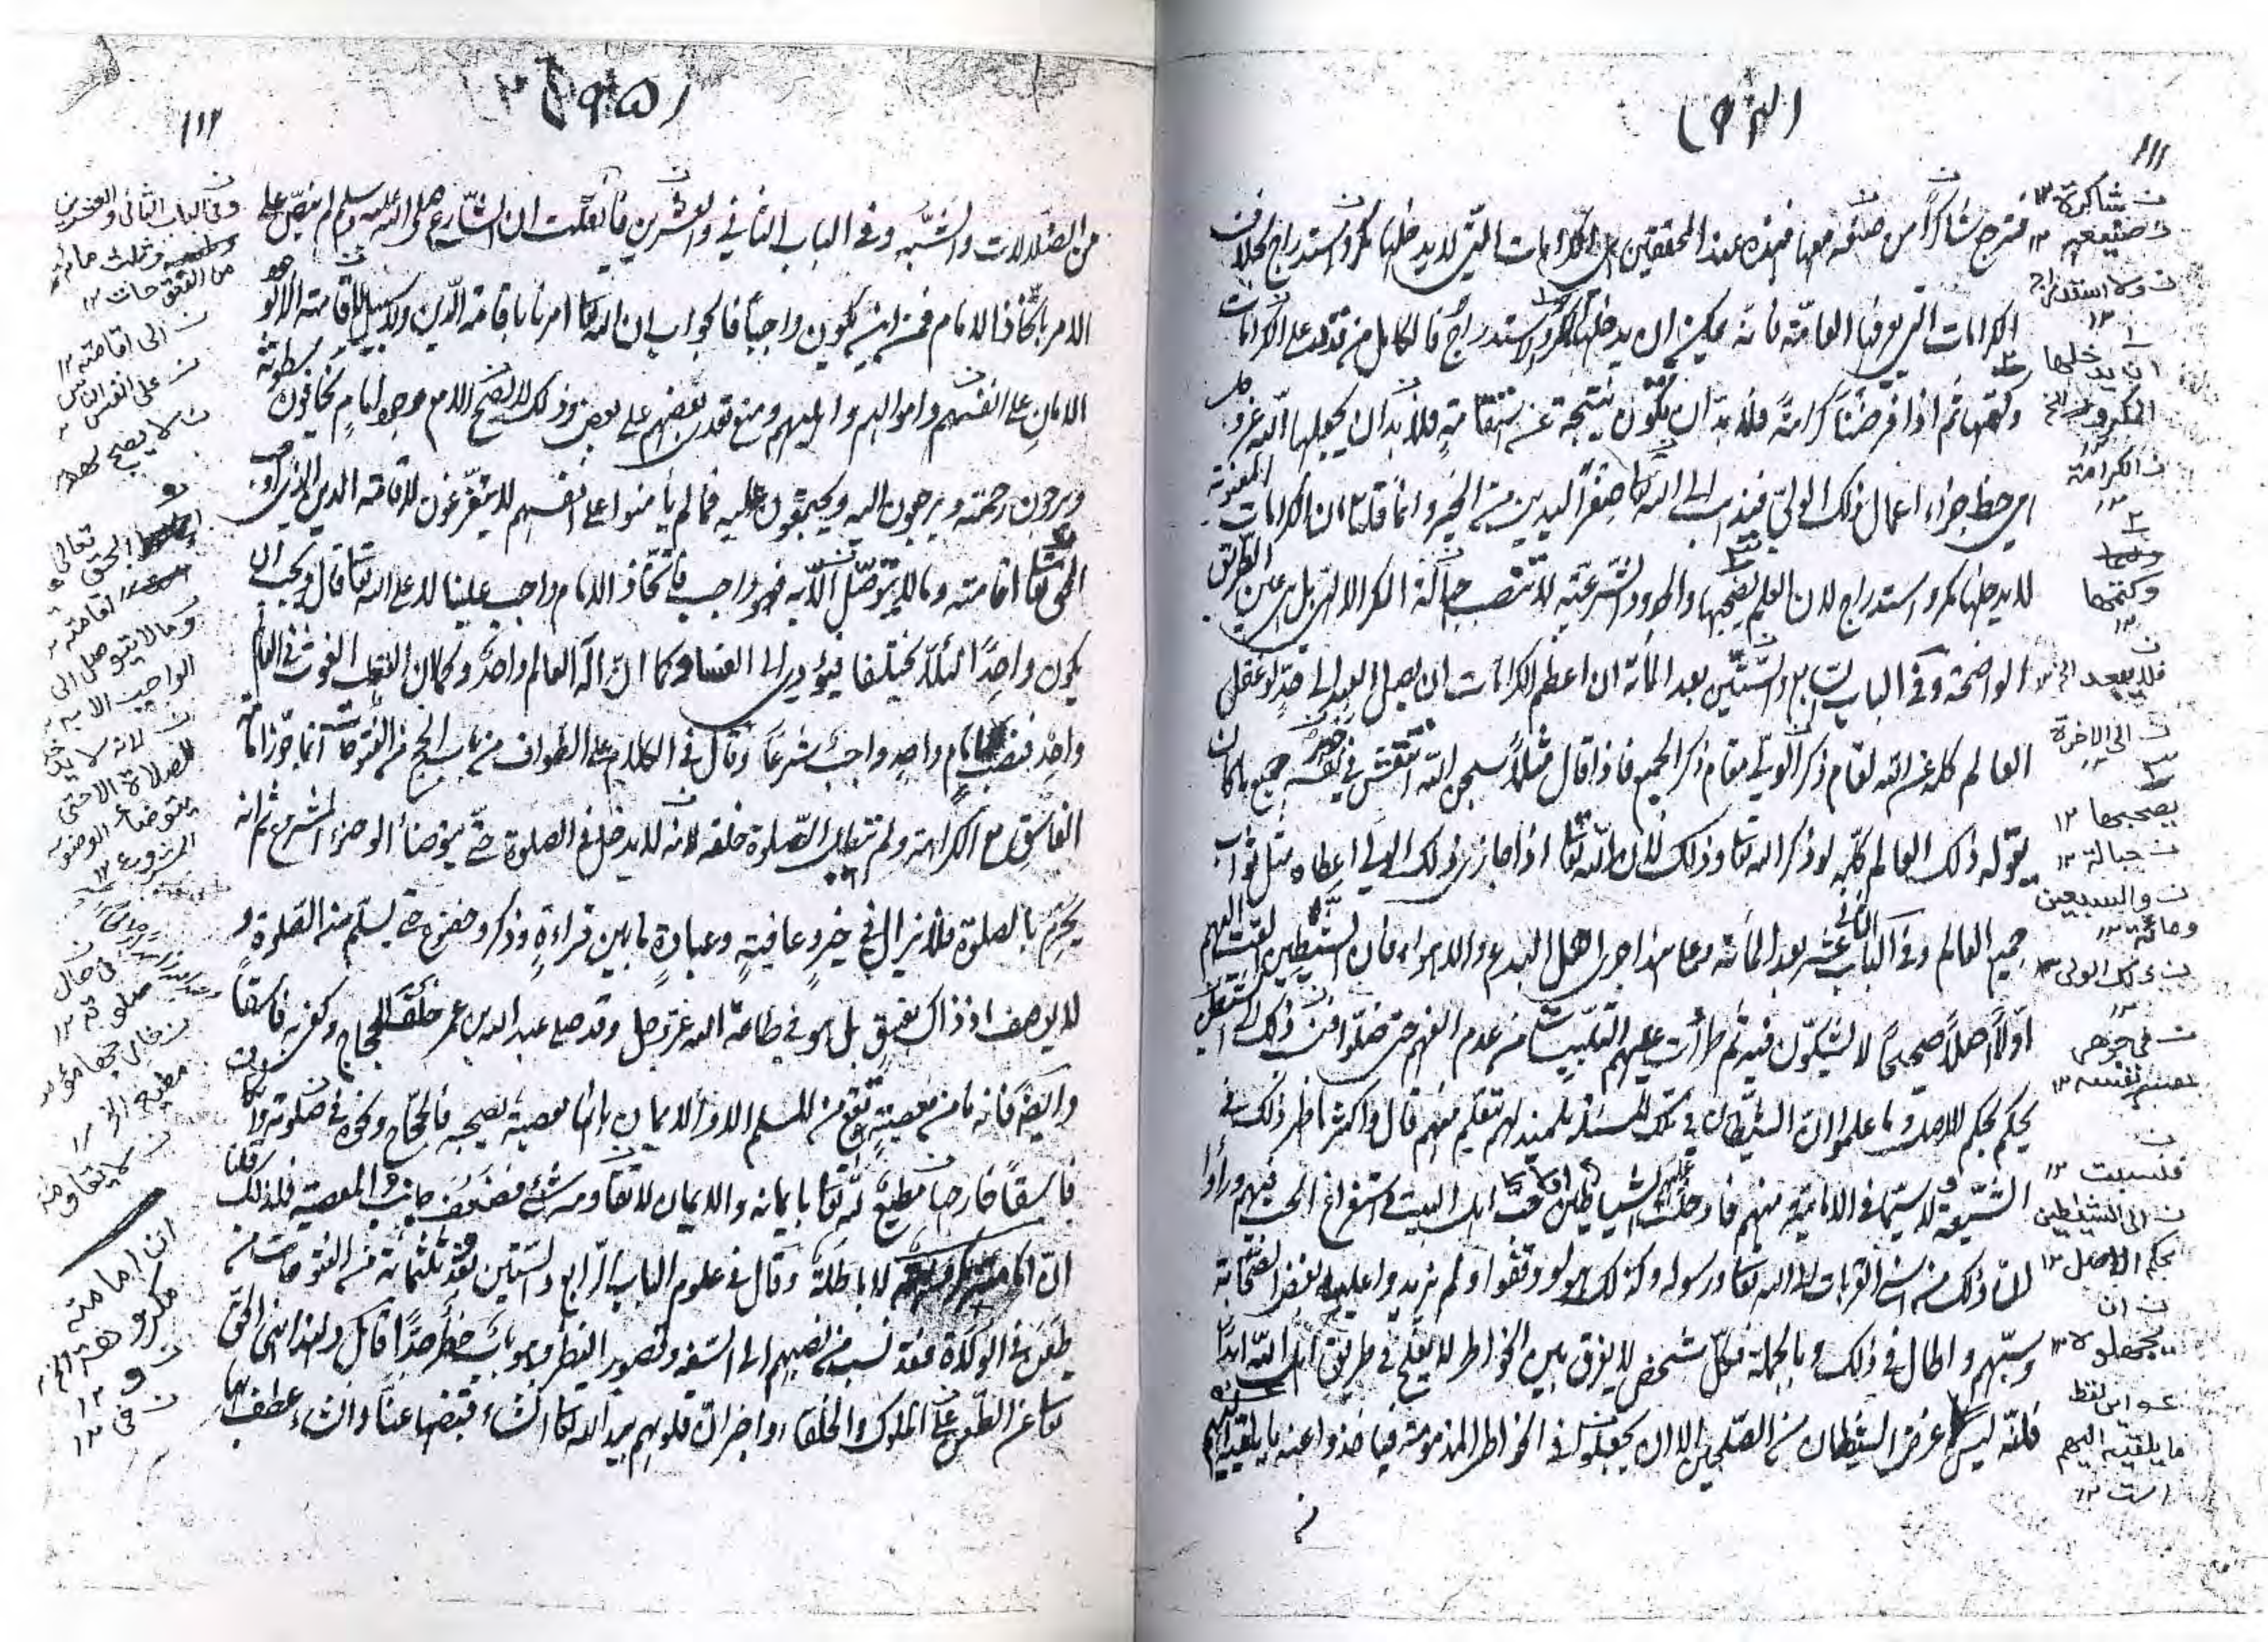 ١١١
فترجع شاكرا من صنعه معها فهذه عند المحققين هى الكرامات التى لا يدخلها مكر ولا استدراج بخلاف
الكرامات التى يعرفها العامة فانه يمكن ان يدخلها المكر والاستدراج فالكامل من قدر على الكرامات
وكتمها ثم اذا فرضنا كرامة فلا بد ان تكون نتيجة عن استقامة فلا بد ان يجعلها الله عز وجل
من حظ جزاء اعمال ذلك الولى فيذهب الى الله تعا صفر اليدين من الخير وانما قلنا ان الكرامات المعنوية
لا يدخلها مكر واستدراج لان العلم يصحبها والحدود الشرعية لا تنصب حبالة المكر الالهى بل هى عين الطريق
الواضحة وفى الباب السابع والستين بعد المأة ان اعظم الكرامات ان يصل العبد الى حد لو غفل
العالم كله عن الله لقام ذكر الولى مقام ذكر الجميع فاذا قال مثلا سبحن الله انتقش فى نفسه جميع ما كان
يقوله ذلك العالم كله لو ذكر الله تعا وذلك لان الله تعا اذا جازى ذلك الولى اعطاه مثل ثواب
جميع العالم وفى الباب عشر بعد المأته ومما اجرى اهل البدع والاهواء فان الشيطين القت اليهم
اولا اصلا صحيحا لا يشكون فيه ثم طرأت عليهم التلبيسات من عدم الفهم حتى ضلوا
بحكم الاصل وما علموا ان الشيطان فى تلك المسئلة تلميذ لهم يتعلم منهم قال واكثر ما ظهر ذلك فى
الشيعة لا سيما فى الامامية منهم فادخلت الشياطين اهل البيت واستفراغ الحب فيهم وراوا
ان ذلك من اسنى القربات الى الله تعا ورسوله وكذلك هو لو وقفوا ولم يزيدوا عليه بغض الصحابة
وسبهم واطال فى ذلك وبالجملة فكل شخص لا يفرق بين الخواطر لا يفلح فى طريق اهل الله ابدا
فانه ليس غرض الشيطان من الصلحين الا ان يجعلون فى الخواطر المذمومة فياخذوا عنه ما يلقيه اليهم
شاكرة ١٢
صنيعهم ١٢
ولا استدراج ١٢
ان يدخلها
المكرو
الكرامة ١٢
وكتمها ١٢
الى الاخرة
يصحبها ١٢
حبالة ١٢
والسبعين
ومائة ١٢
ذلك الولى
فى جوهر
نفسه ١٢
فنسبت ١٢
الى الشيطين
بحكم الاصل ١٢
ان
يجهلون ١٢
ما يلقيه اليهم
است ١٢
١١٢
من الضلالات والشبه وفى الباب الثانى والعشرين فان قلت ان الشارع صلى الله عليه وسلم لم ينص على
الامر باتخاذ الامام فمن اين يكون واجبا فالجواب ان الله تعا امرنا باقامة الدين ولا سبيل الى اقامته الا بوجود
الامان على انفسهم واموالهم واهليهم ومنع تعدى بعضهم على بعض وذلك لا يصح الا مع وجود امام يخافون سطوته
ويرجون رحمته ويرجعون اليه ويجتمعون عليه فما لم يأمنوا على انفسهم لا يتفرغون لاقامة الدين الذى اوجب
الحق تعا اقامته وما لا يتوصل الا به فهو واجب فاتخاذ الامام واجب علينا لا على الله تعا قال ويجب ان
يكون واحدا لئلا يختلفا فيؤدى الى الفساد كما ان اله العالم واحد وكما ان القطب الغوث فى العالم
واحد فنصب امام واحد واجب شرعا وقال فى الكلام على الطواف من باب الحج من الفتوحات انما جوزنا امامة
الفاسق مع الكراهة ولم تبطل الصلوة خلفه لانه لا يدخل فى الصلوة حتى يتوضأ الوضوء المشروع ثم انه
يحرم بالصلوة فلا يزال فى خير وعافية وعبادة ما بين قراءة وذكر وخضوع حتى يسلم من الصلوة و
لا يوصف اذ ذاك بفسق بل هو فى طاعة الله عز وجل وقد صلى عبد الله بن عمر خلف الحجاج وكفى به فاسقا
وايضا فانه ما من معصية تقع من المسلم الا والايمان بانها معصية يصحبه فالحجاج وكفره فى صلوته وان كان
فاسقا خارجا مطيع لله تعا بايمانه والايمان لا يقاومه شئ فضعف جانب المعصية فلذلك قلنا
ان امامته مكروهة لا باطلة وقال فى علوم الباب الرابع والستين وثلثمائة من الفتوحات من
طعن فى الولاة فقد نسب من نصبهم الى السفه وقصور النظر وهو باب خطر جدا قال ولهذا نهى الحق
تعا عن الطعن على الملوك والخلفاء واخبر ان قلوبهم بيد الله تعا ان شاء قبضها عنا وان شاء عطف بها
وفى الباب الثانى والعشرين
وثلث مائة
من الفتوحات ١٢
الى اقامته ١٢
على انفس الناس
لا يصح
الحق تعالى
اقامته
وما لا يتوصل الى
الواجب الا به
لانه لا
للصلاة الا حتى
يتوضأ الوضوء
المشروع ١٢
فى حال
صلوته ١٢
مطيع الخ ١٢
لا يقاومه
ان امامته
مكروهة الخ
و ١٢
فى ١٢